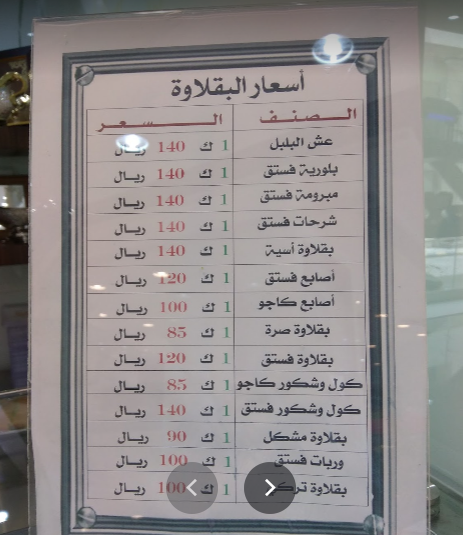 أسعار البقلاوة
الـصنـف الـسـعر
عش البلبل 1 ك 140 ريال
بلورية فستق 1 ك 140 ريال
مبرومة فستق 1 ك 140 ريال
شرحات فستق 1 ك 140 ريال
بقلاوة أسية 1 ك 140 ريال
أصابع فستق 1 ك 120 ريال
أصابع كاجو 1 ك 100 ريال
بقلاوة صرة 1 ك 85 ريال
بقلاوة فستق 1 ك 120 ريال
كول وشكور كاجو 1 ك 85 ريال
كول وشكور فستق 1 ك 140 ريال
بقلاوة مشكل 1 ك 90 ريال
وربات فستق 1 ك 100 ريال
بقلاوة 1 ك 100 ريال